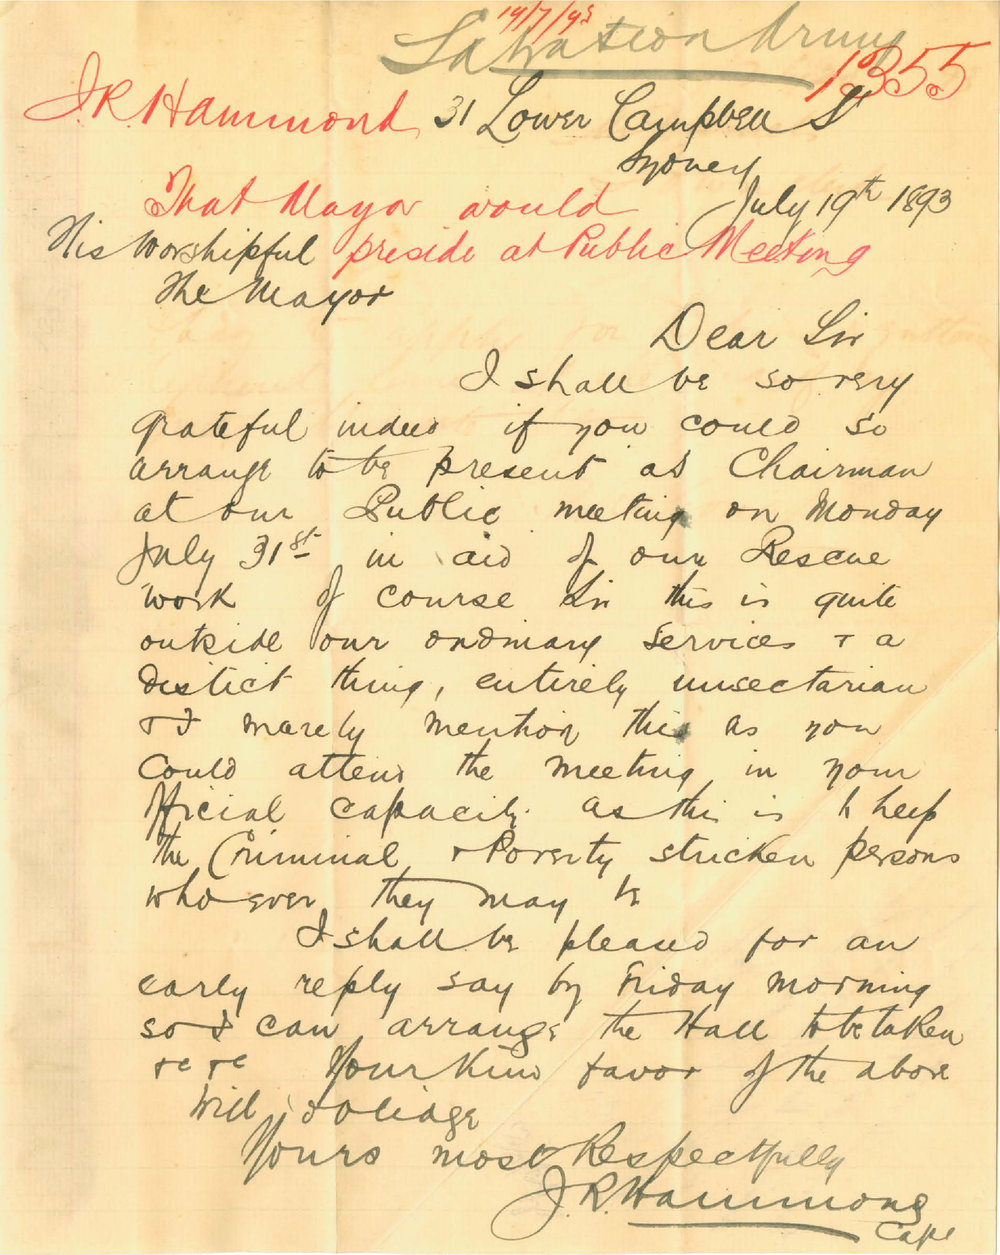 19/7/93
Salvation Army
1355
J.R. Hammond 31 Lower Campbell St
Sydney
That Mayor would July 19th 1893
His Worshipful preside at Public Meeting
The Mayor
Dear Sir
I shall be so very
grateful indeed if you could so
arrange to be present as Chairman
at our Public meeting on Monday
July 31st in aid of our Rescue
work of course Sir this is quite
outside our ordinary services + a
distict thing, entirely unsectarian
+ I merely mention this as you
could attend the meeting in your
official capacity as this is to help
the Criminal + Poverty stricken persons
who ever they may be
I shall be pleased for an
early reply say by Friday morning
so I can arrange the Hall to be taken
+c +c Your kind favor of the above
will oblidge
Yours most Respectfully
J.R. Hammond
Capt